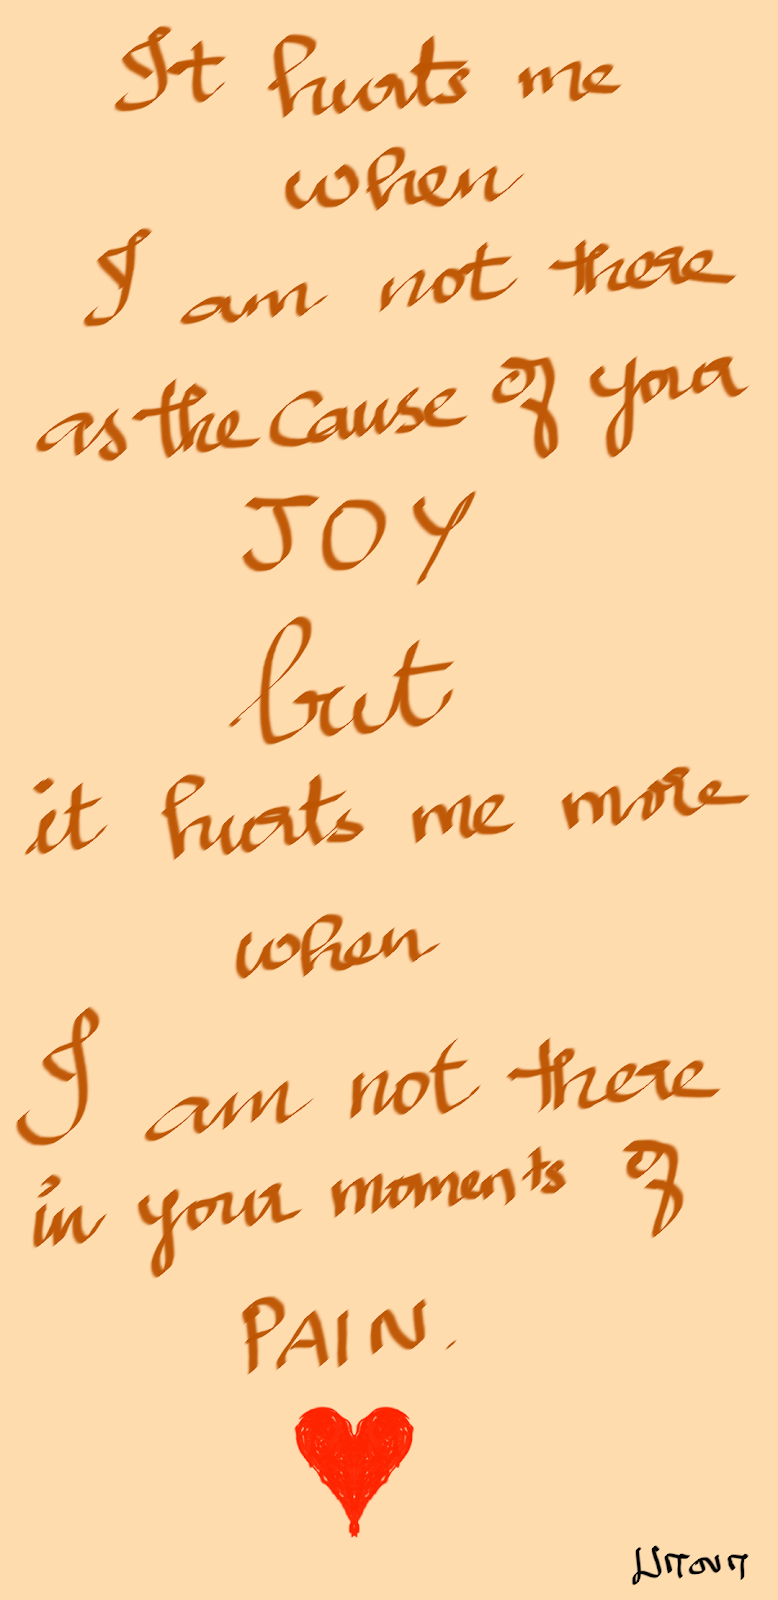 It hurts me
when
I am not there
as the cause of your
JOY
but
it hurts me more
when
I am not there
in your moments of
PAIN.